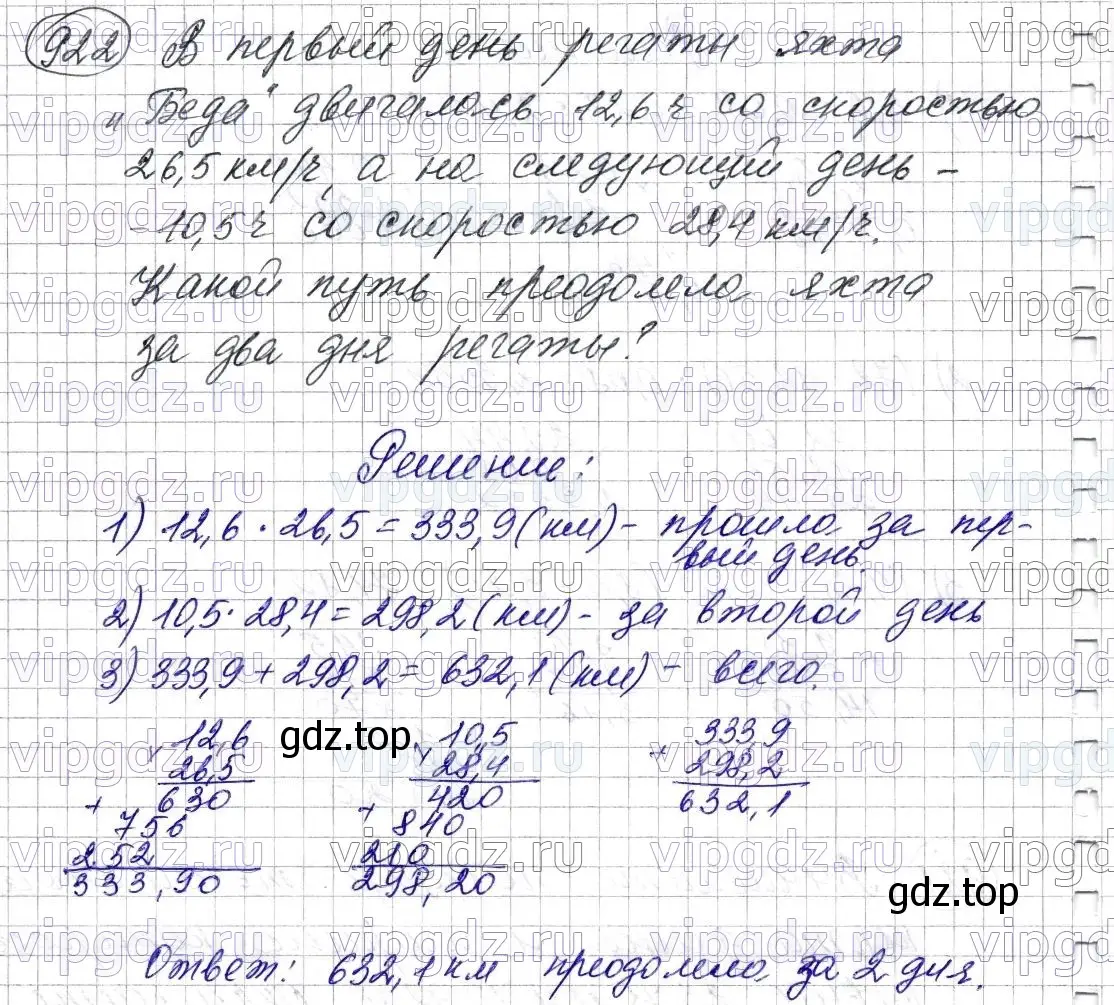 922 В первый день регаты яхта
„Беда" двигалась 12,6 ч со скоростью
26,5 км/ч, а на следующий день –
– 10,5 ч со скоростью 28,4 км/ч.
Какой путь преодолела яхта
за два дня регаты?
Решение:
1) 12,6 · 26,5 = 333,9 (км) – прошла за пер-
вый день.
2) 10,5 · 28,4 = 298,2 (км) – за второй день
3) 333,9 + 298,2 = 632,1 (км) – всего.
× 12,6 gdz.top × 10,5 + 333,9
26,5 28,4 298,2
+ 630 + 420 632,1
756 840
252 210
333,90 298,20
gdz.top
Ответ: 632,1 км преодолела за 2 дня.
vipgdz.ru